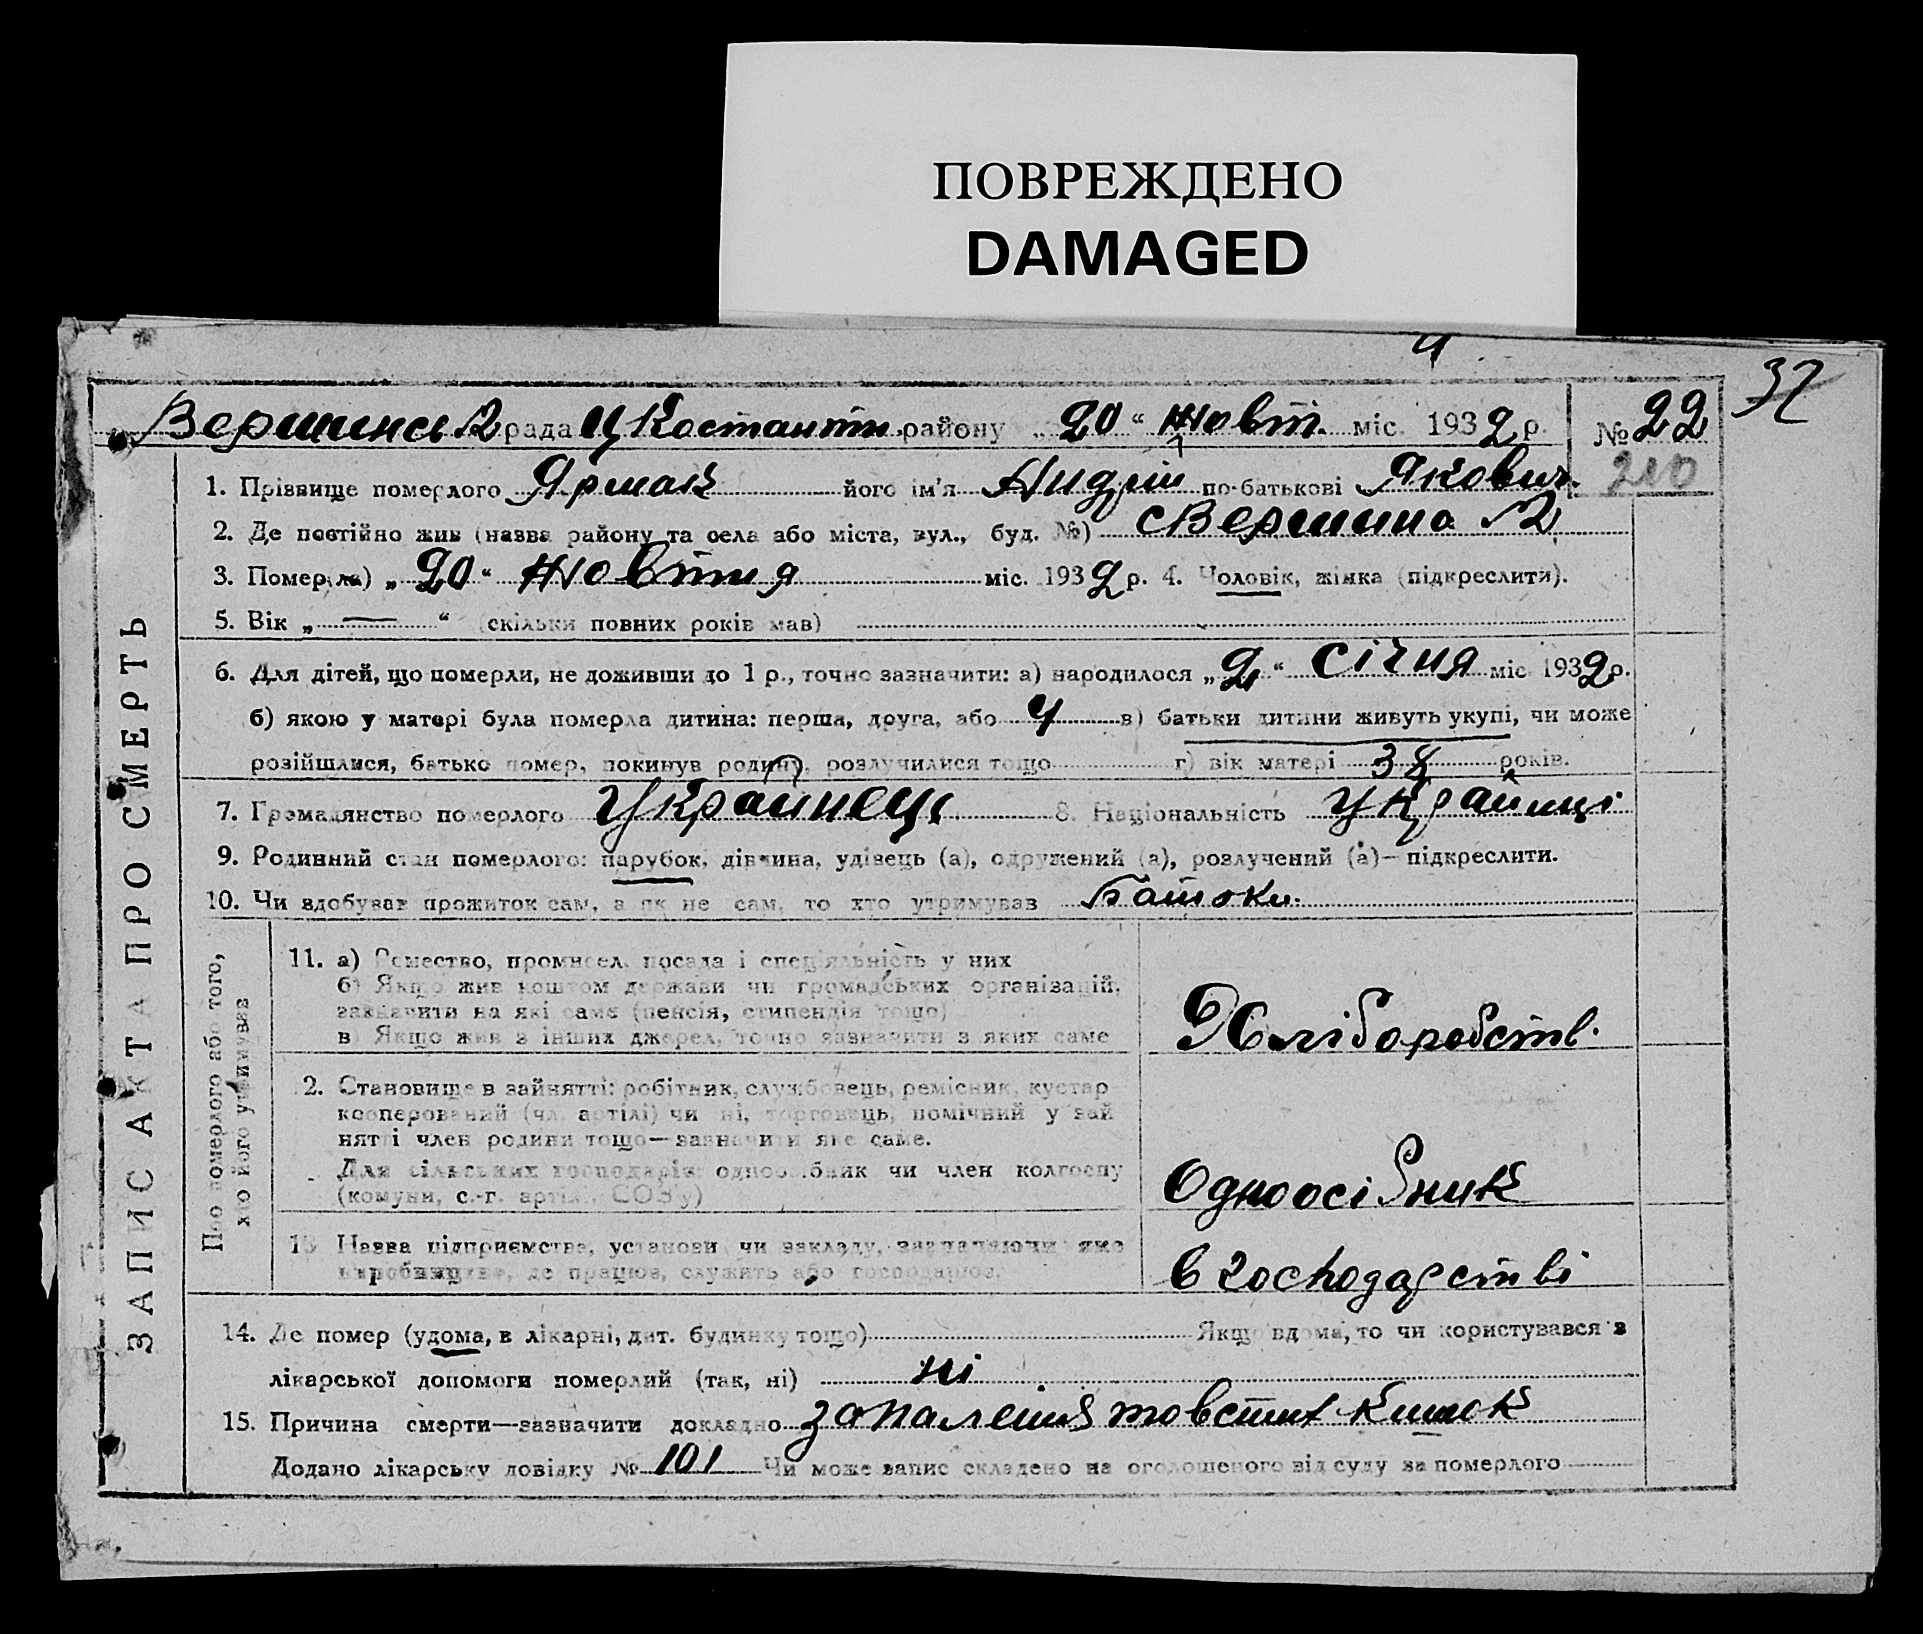 ПОВРЕЖДЕНО
DAMAGED
32
Вершинсь 2 рада Костантн. району „20“ жовт. міс. 1932 р. № 22
210
1. Прізвище померлого Ярмак його ім'я Андрій по-батькові Якович.
2. Де постійно жив (назва району та села або міста, вул., буд. №) с Вершина 2
3. Помер(ла) „20“ жовтня міс. 1932 р. 4. Чоловік, жінка (підкреслити).
5. Вік „—“ (скільки повних років мав)
6. Для дітей, що померли, не доживши до 1 р., точно зазначити: а) народилося „2“ січня міс 1932 р.
б) якою у матері була померла дитина: перша, друга, або 4 в) батьки дитини живуть укупі, чи може
розійшлися, батько помер, покинув родину, розлучилися тощо г) вік матері 38 років.
7. Громадянство померлого Українець 8. Національність Україньці
9. Родинний стан померлого: парубок, дівчина, удівець (а), одружений (а), розлучений (а)— підкреслити.
10. Чи здобував прожиток сам, а як не сам, то хто утримував Батоки.
ЗАПИС АКТА ПРО СМЕРТЬ
Про померлого або того,
хто його утримував
11. а) Ремество, промисел, посада і спеціяльність у них
б) Якщо жив коштом держави чи громадських організацій,
зазначити на які саме (пенсія, стипендія тощо)
в) Якщо жив з інших джерел, точно зазначити з яких саме
Хліборобств.
2. Становище в зайнятті: робітник, службовець, ремісник, кустар
кооперований (чл. артілі) чи ні, торговець, помічний у зай
нятті член родини тощо—зазначити яке саме.
Для сільських господарів: одноосібник чи член колгоспу
(комуни, с.-г. артілі, СОЗ'у)
Одноосібник
13 Назва підприємства, установи чи закладу, зазначаючи яке
виробництво, де працює, служить або господарює.
в господарстві
14. Де помер (удома, в лікарні, дит. будинку тощо) Якщо вдома, то чи користувався з
лікарської допомоги померлий (так, ні) ні
15. Причина смерти—зазначити докладно запаленія товстих кишок
Додано лікарську довідку № 101 Чи може запис складено на оголошеного від суду за померлого